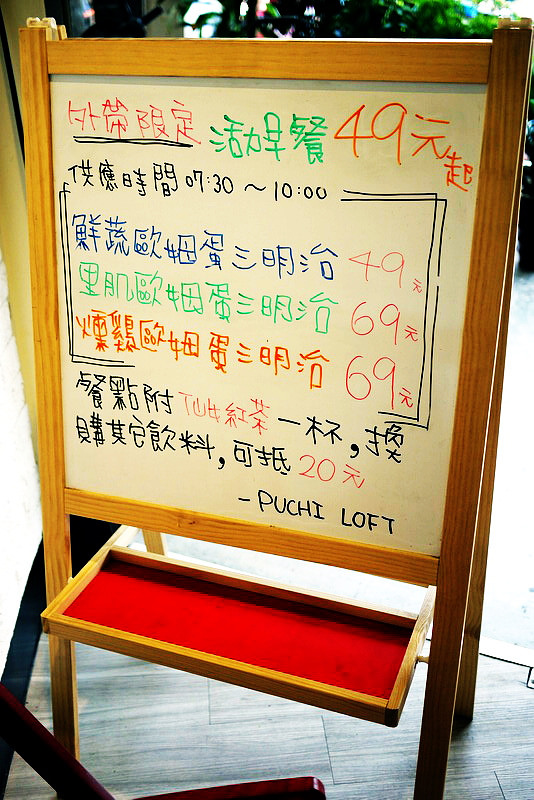 外帶限定 活力早餐 49元起
供應時間 07:30 ～ 10:00
鮮蔬歐姆蛋三明治 49元
里肌歐姆蛋三明治 69元
燻鷄歐姆蛋三明治 69元
餐點附 TWG紅茶 一杯，換
購其它飲料，可抵 20元
- PUCHI LOFT